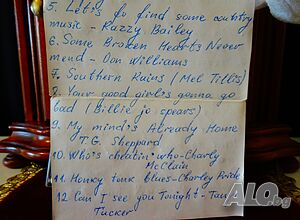 5. Let's go find some country
music - Razzy Bailey
6. Some Broken Hearts Never
mend - Don Williams
7. Southern Rains (Mel Tillis)
8. Your good girl's gonna go
bad (Billie jo spears)
9. My mind's Already Home
T.G. Sheppard
10. Who's cheatin' who - Charly
McClain
11. Honky tonk blues - Charley Pride
12. Can I see you Tonight - Tan
Tucker
ALO.bg